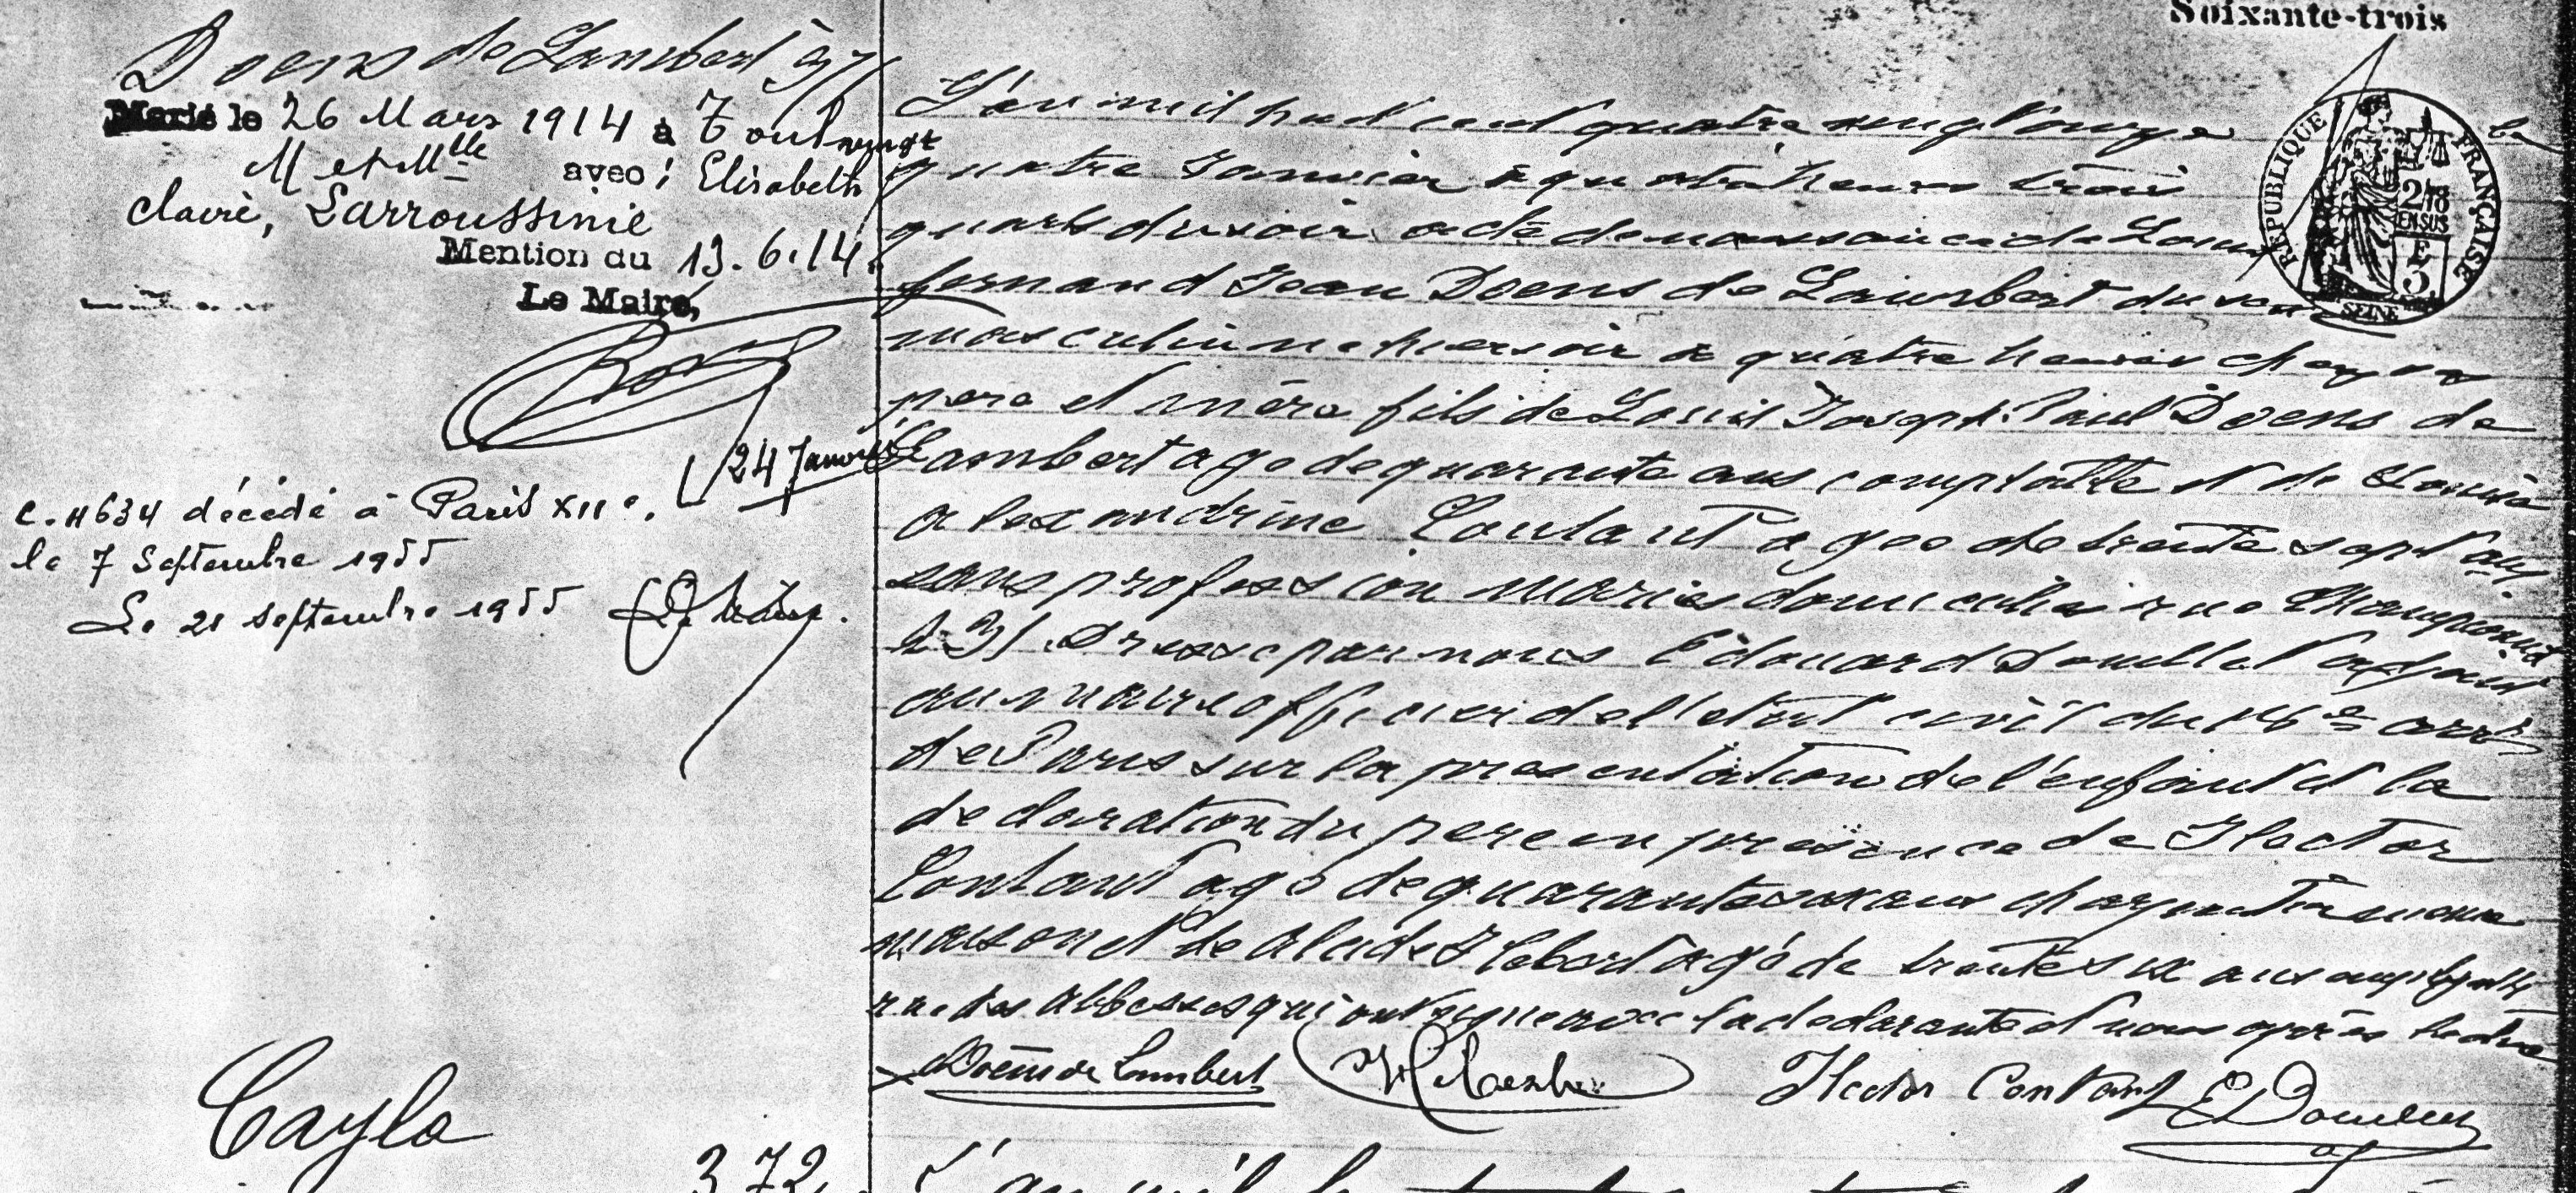 Soixante-trois
Doens de Lambert 371
Marié le 26 Mars 1914 à
M et Mlle avec : Elisabeth
Claire, Larroussinie
Mention du 13.6.14.
Le Maire,
24 Janvier
décédé à Paris XIIe.
le 7 Septembre 1955
Le 21 septembre 1955
L'an mil huit cent quatre vingt onze le
quatre Janvier à quatre heures trois
quarts du soir acte de naissance de Louis
fernand Jean Doens de Lambert du sexe
masculin né hier soir à quatre heures chez ses
pere et mère fils de Louis Joseph Paul Doens de
Lambert agé de quarante ans comptable et de
alexandrine Contant agée de trente sept ans
sans profession mariés domiciliés rue Championnet
Dressé par nous Edouard Douillet adjoint
au maire officier de l'etat civil du arrt
de Paris sur la presentation de l'enfant et la
declaration du pere en presence de Hector
Contant agé de quarante six ans même
maison et de alcide agé de trente six ans employé
rue des abbesses qui ont signé avec le declarant et nous après lecture
Doens de Lambert Hector Contant E Douillet
REPUBLIQUE FRANÇAISE
2/10
EN SUS
E
3
SEINE
Cayla
372
L'an mil